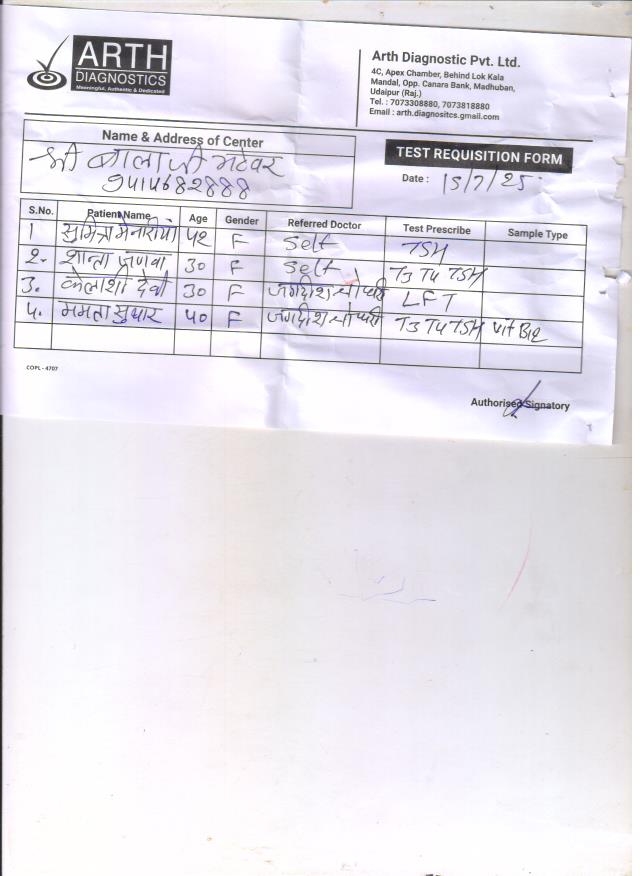 ARTH
DIAGNOSTICS
Meaningful, Authentic & Dedicated
Arth Diagnostic Pvt. Ltd.
4C, Apex Chamber, Behind Lok Kala
Mandal, Opp. Canara Bank, Madhuban,
Udaipur (Raj.)
Tel. : 7073308880, 7073818880
Email : arth.diagnositcs.gmail.com
Name & Address of Center
श्री बालाजी भटेवर
9414682888
TEST REQUISITION FORM
Date : 15/7/25
S.No. Patient Name Age Gender Referred Doctor Test Prescribe Sample Type
1 सुमित्रा मेनारीया 42 F Self TSH
2. शान्ता 30 F Self T3 T4 TSH
3. कैलाशी देवी 30 F जगदीश LFT
4. ममता सुथार 40 F जगदीश T3 T4 TSH Vit B12
COPL - 4707
Authorised Signatory